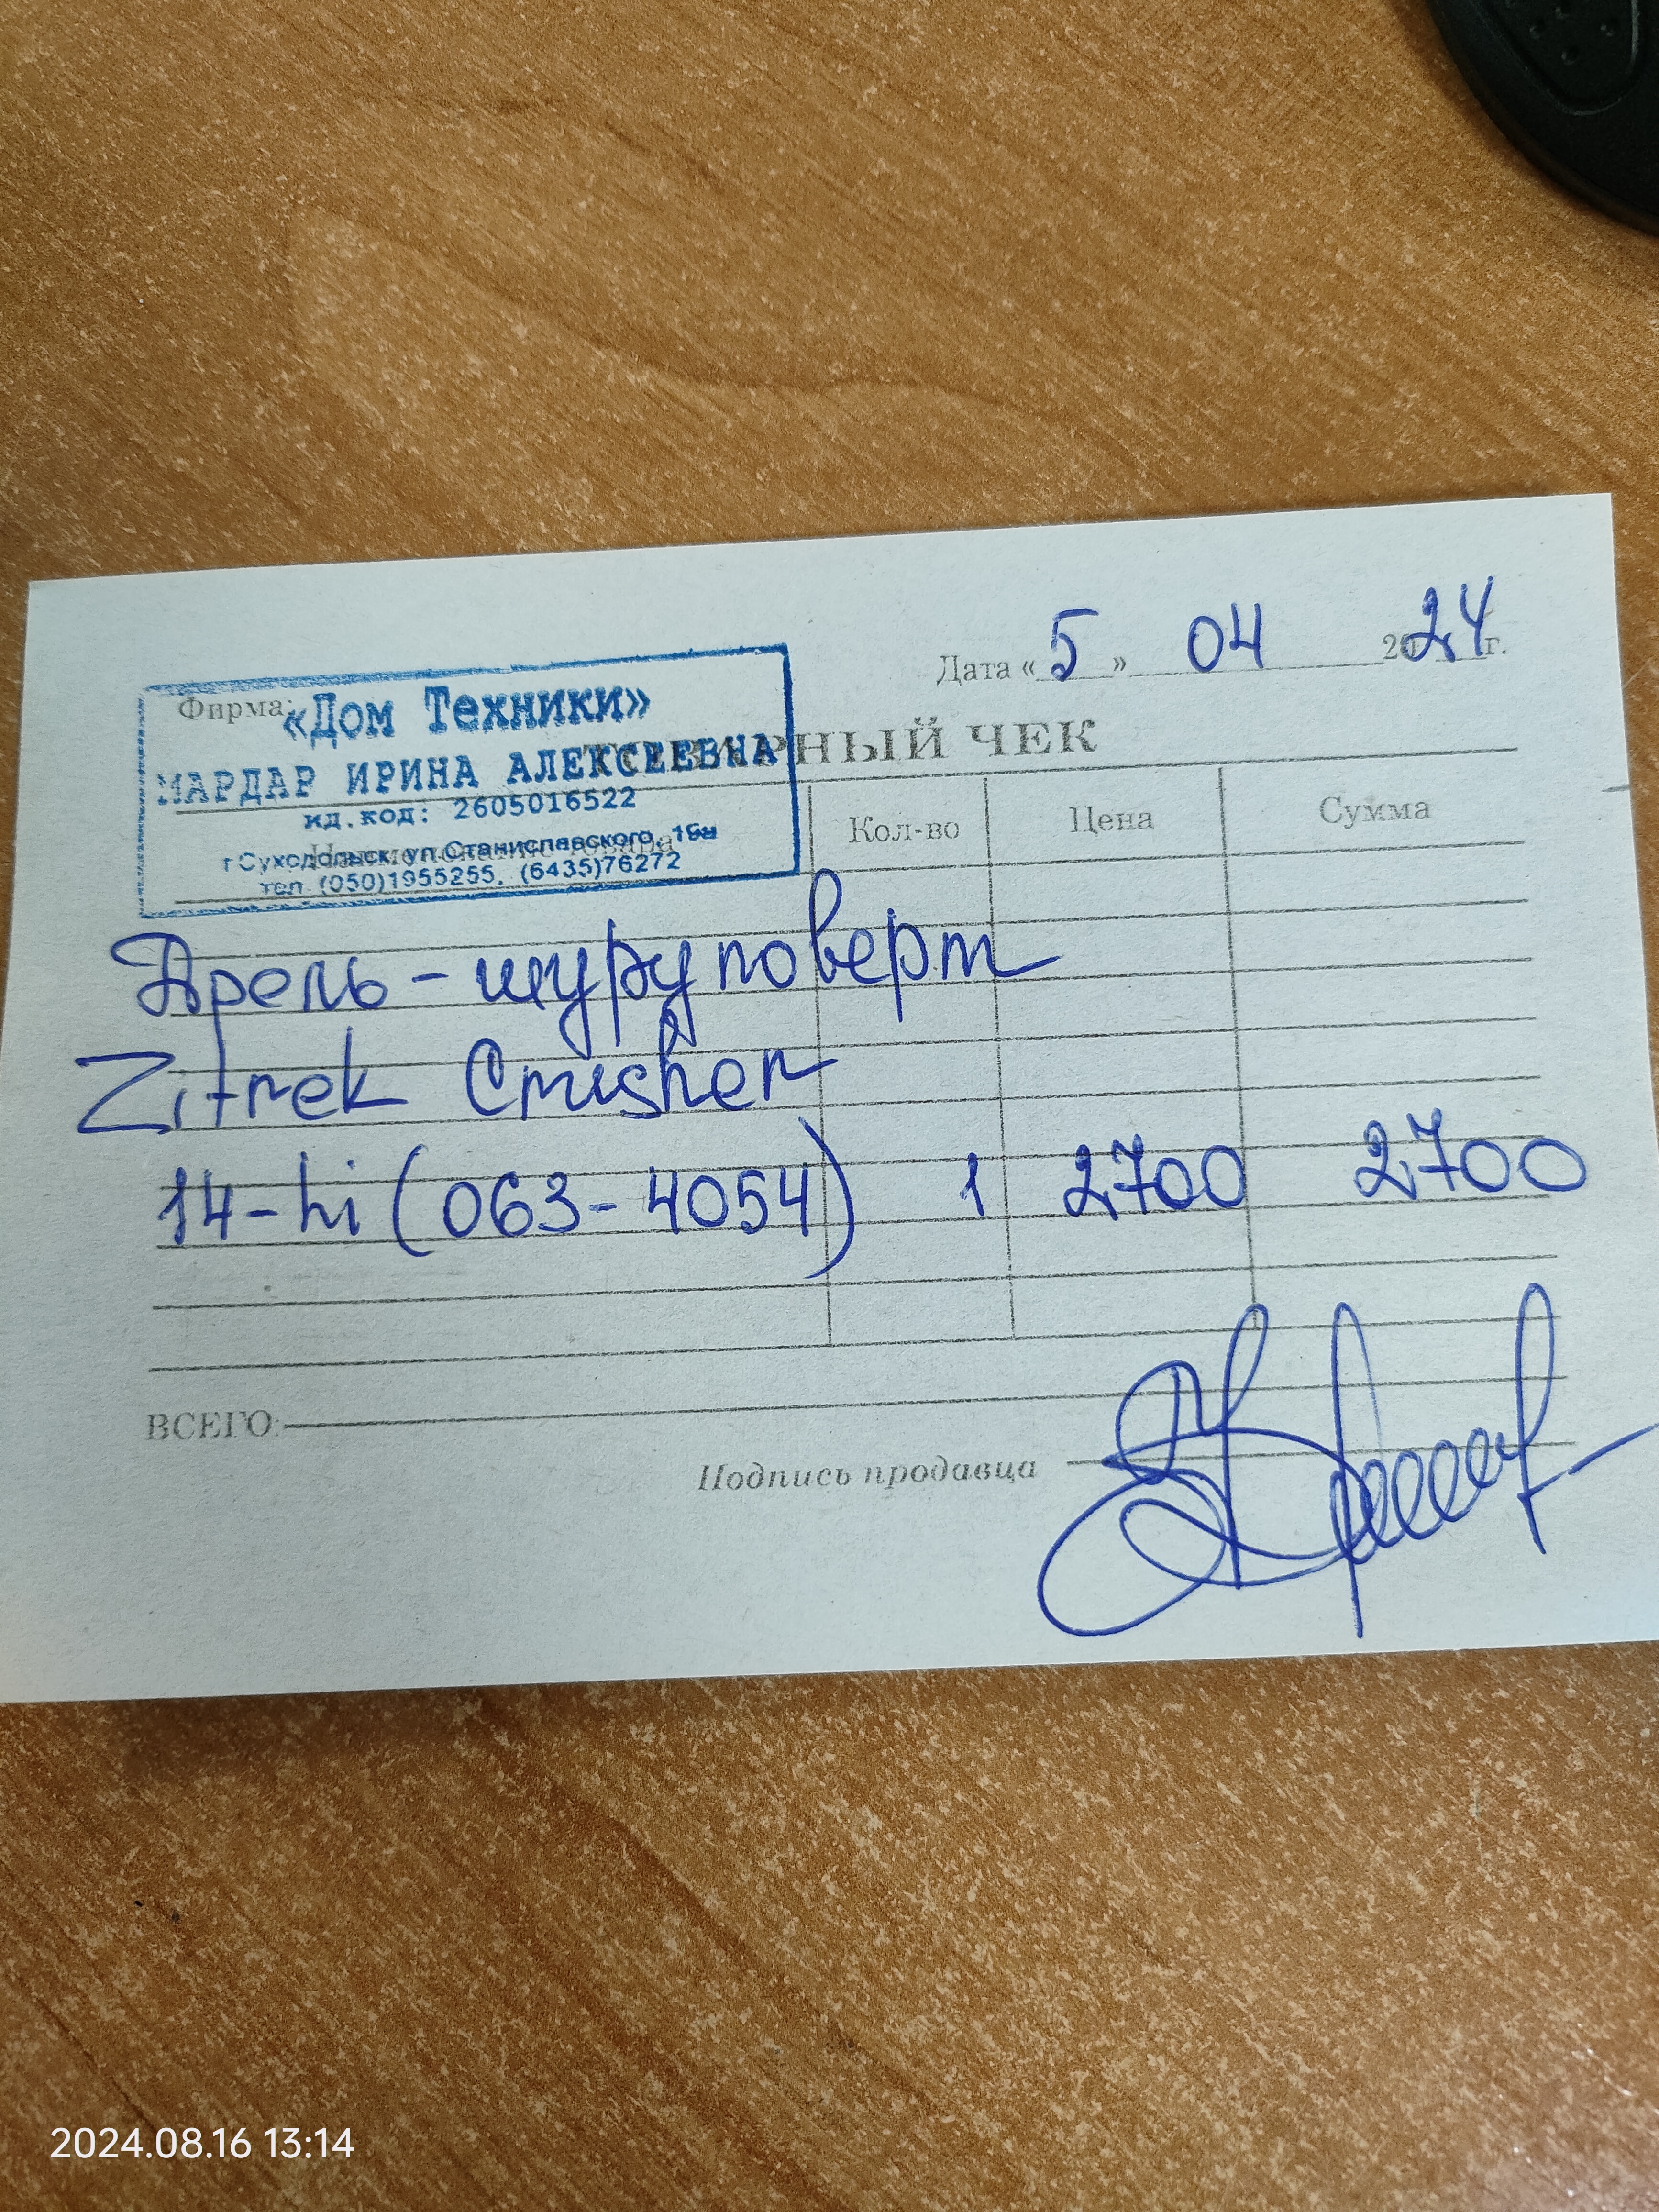 Дата « 5 » 04 2024 г.
Фирма:
«Дом Техники»
МАРДАР ИРИНА АЛЕКСЕЕВНА
ТОВАРНЫЙ ЧЕК
ид.код: 2605016522
г Суходольск, ул Станиславского,
тел. (050)1955255, (6435)76272
Наименование товара Кол-во Цена Сумма
Дрель-шуруповерт
Zitrek Crusher
14-hi (063-4054) 1 2700 2700
ВСЕГО:
Подпись продавца
2024.08.16 13:14